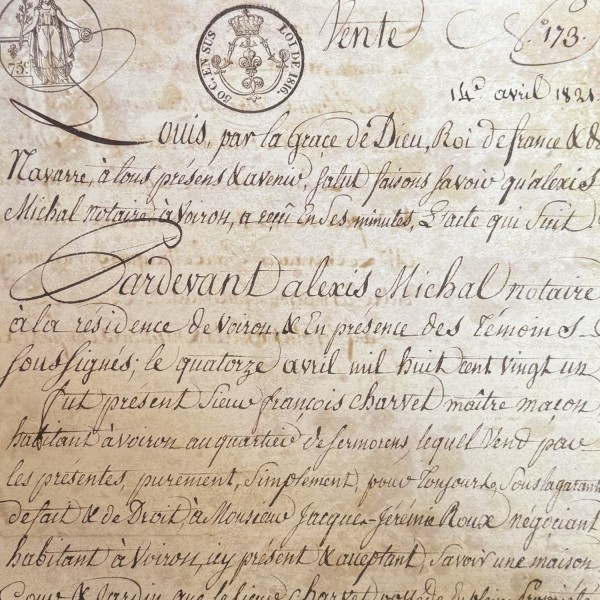 75c.
50 C. EN SUS LOI DE 1816.
Vente
173.
14e avril 1821.
Louis, par la Grace de Dieu, Roi de france & de
Navarre, à tous présens & avenir, salut faisons savoir qu'alexis
Michal notaire à Voiron, a reçu En ses minutes, L'acte qui Suit
Pardevant alexis Michal notaire
à la residence de Voiron, & En présence des Témoins
Soussignés; le quatorze avril mil huit cent Vingt un
fut présent Sieur françois charvet maître maçon
habitant à Voiron au quartier de sermorens, lequel Vend par
les présentes, purement, Simplement, pour Toujours, Sous la garantie
de fait & de Droit, à Monsieur Jacques-Jérémie Roux négociant
habitant à Voiron, icy présent & acceptant; Savoir une maison,
Cour & Jardin que le Sieur charvet possède En pleine propriété